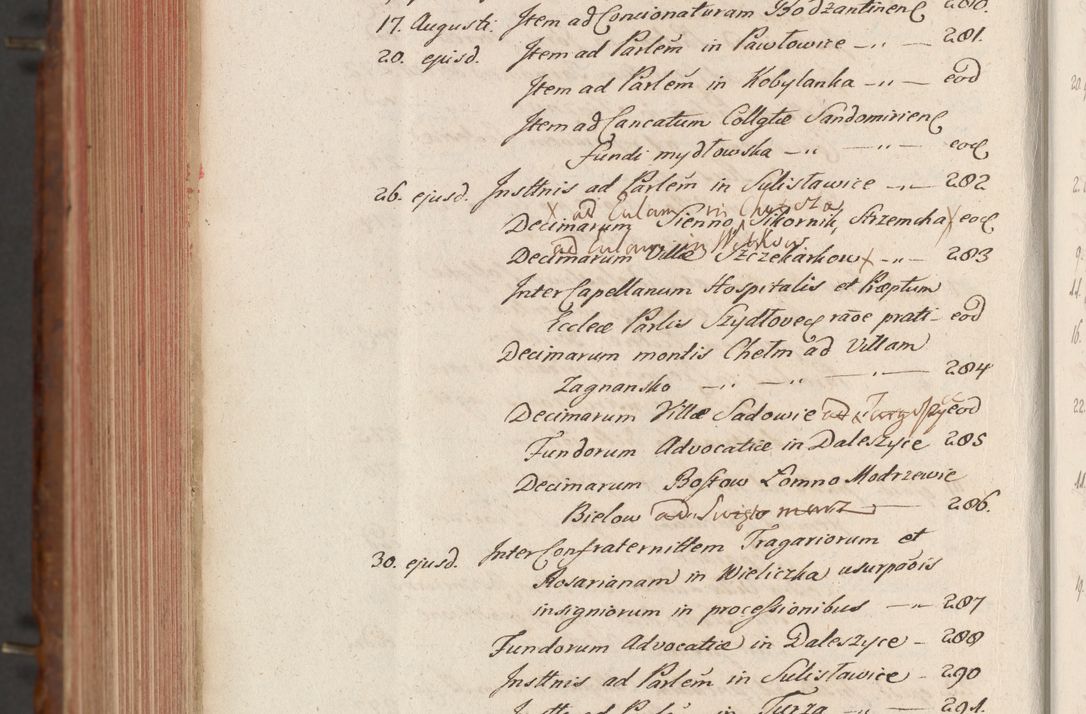 17. Augusti. Item ad Concionaturam Bodzantinenẽ 280.
20. ejusd. Item ad Parlem̃ in Pawłowice — „ — 281.
Item ad Parlem̃ in Kobylanka — „ — eod
Item ad Cancatum Collgtæ Sandomirienẽ
Fundi mydłowska — „ — „ — eod
26. ejusd. Insttnis ad Parlem̃ in Sulisławice — „ — 282
X ad Eulam in
Decimarum Sienno, Sikornik, Strzemcha X eod
ad Eulam in
Decimarum Villæ Szczekarkow X — „ — 283
Inter Capellanum Hospitalis et Præptum
Eccleæ Parlis Szydłovec̃ rãoe prati — eod
Decimarum montis Chełm ad Villam
Zagnansko — „ — „ — „ — 284
Decimarum Villæ Sadowie ad eod
Fundorum Advocatiæ in Daleszyce 285
Decimarum Bostow Łomno Modrzewie
Bielow ad Swięto marz — 286.
30. ejusd. Inter Confraternittem Tragariorum et
Rosarianam in Wieliczka usurpaõis
insigniorum in processionibus — „ 287
Fundorum Advocatiæ in Daleszyce — 288
Insttnis ad Parlem̃ in Sulisławice — 290
in Turza — „ — 291.